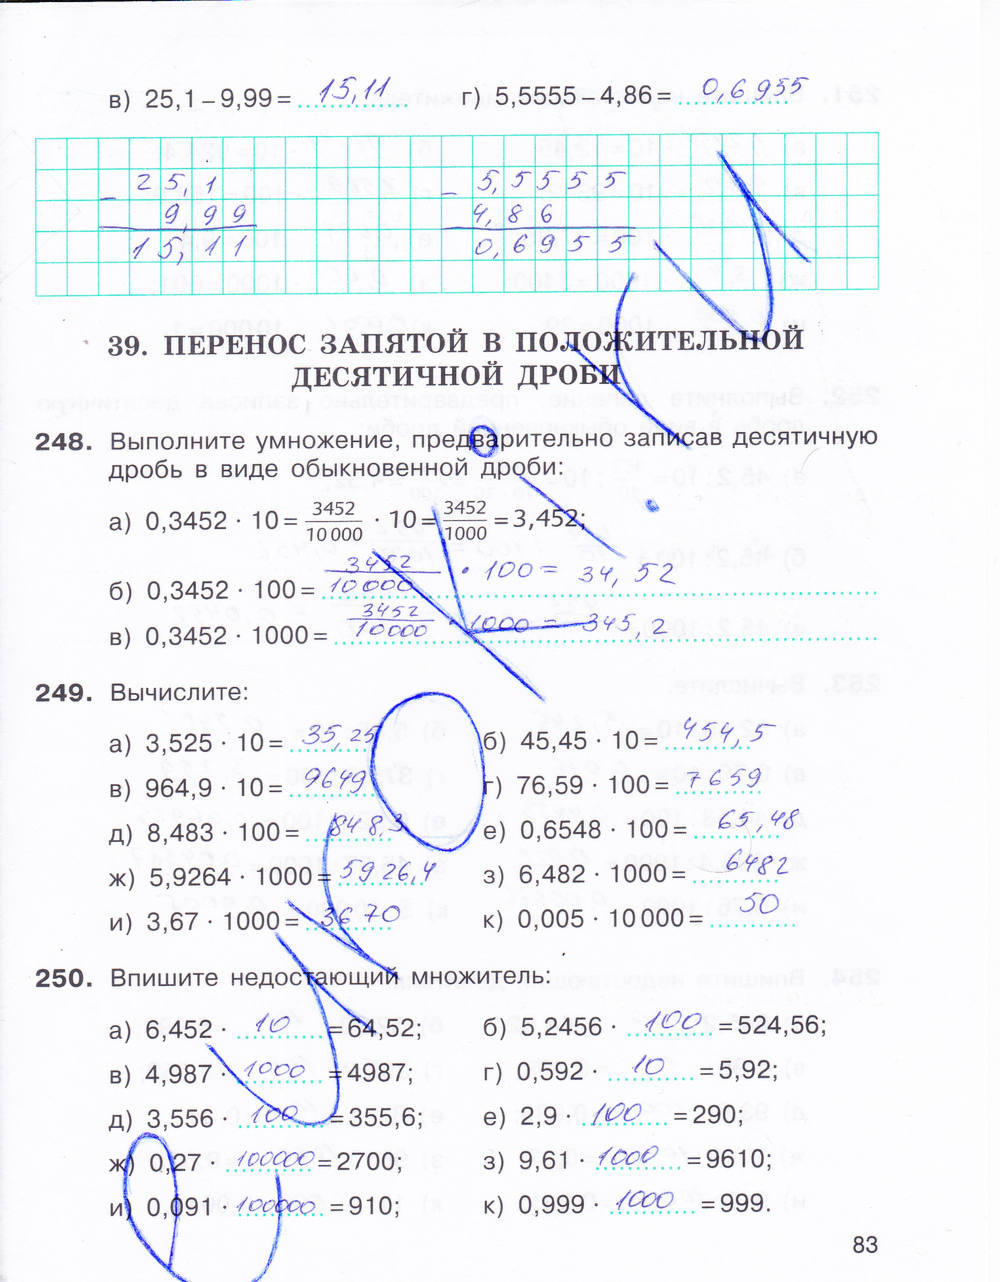 в) 25,1 – 9,99 = 15,11 г) 5,5555 – 4,86 = 0,6955
25,1 5,5555
– 9,99 – 4,86
15,11 0,6955
39. ПЕРЕНОС ЗАПЯТОЙ В ПОЛОЖИТЕЛЬНОЙ
ДЕСЯТИЧНОЙ ДРОБИ
248. Выполните умножение, предварительно записав десятичную
дробь в виде обыкновенной дроби:
а) 0,3452 · 10 = 3452/10 000 · 10 = 3452/1000 = 3,452;
б) 0,3452 · 100 = 3452/10000 · 100 = 34,52
в) 0,3452 · 1000 = 3452/10000 · 1000 = 345,2
249. Вычислите:
а) 3,525 · 10 = 35,25 б) 45,45 · 10 = 454,5
в) 964,9 · 10 = 9649 г) 76,59 · 100 = 7659
д) 8,483 · 100 = 848,3 е) 0,6548 · 100 = 65,48
ж) 5,9264 · 1000 = 5926,4 з) 6,482 · 1000 = 6482
и) 3,67 · 1000 = 3670 к) 0,005 · 10 000 = 50
250. Впишите недостающий множитель:
а) 6,452 · 10 = 64,52; б) 5,2456 · 100 = 524,56;
в) 4,987 · 1000 = 4987; г) 0,592 · 10 = 5,92;
д) 3,556 · 100 = 355,6; е) 2,9 · 100 = 290;
ж) 0,27 · 100000 = 2700; з) 9,61 · 1000 = 9610;
и) 0,091 · 100000 = 910; к) 0,999 · 1000 = 999.
83